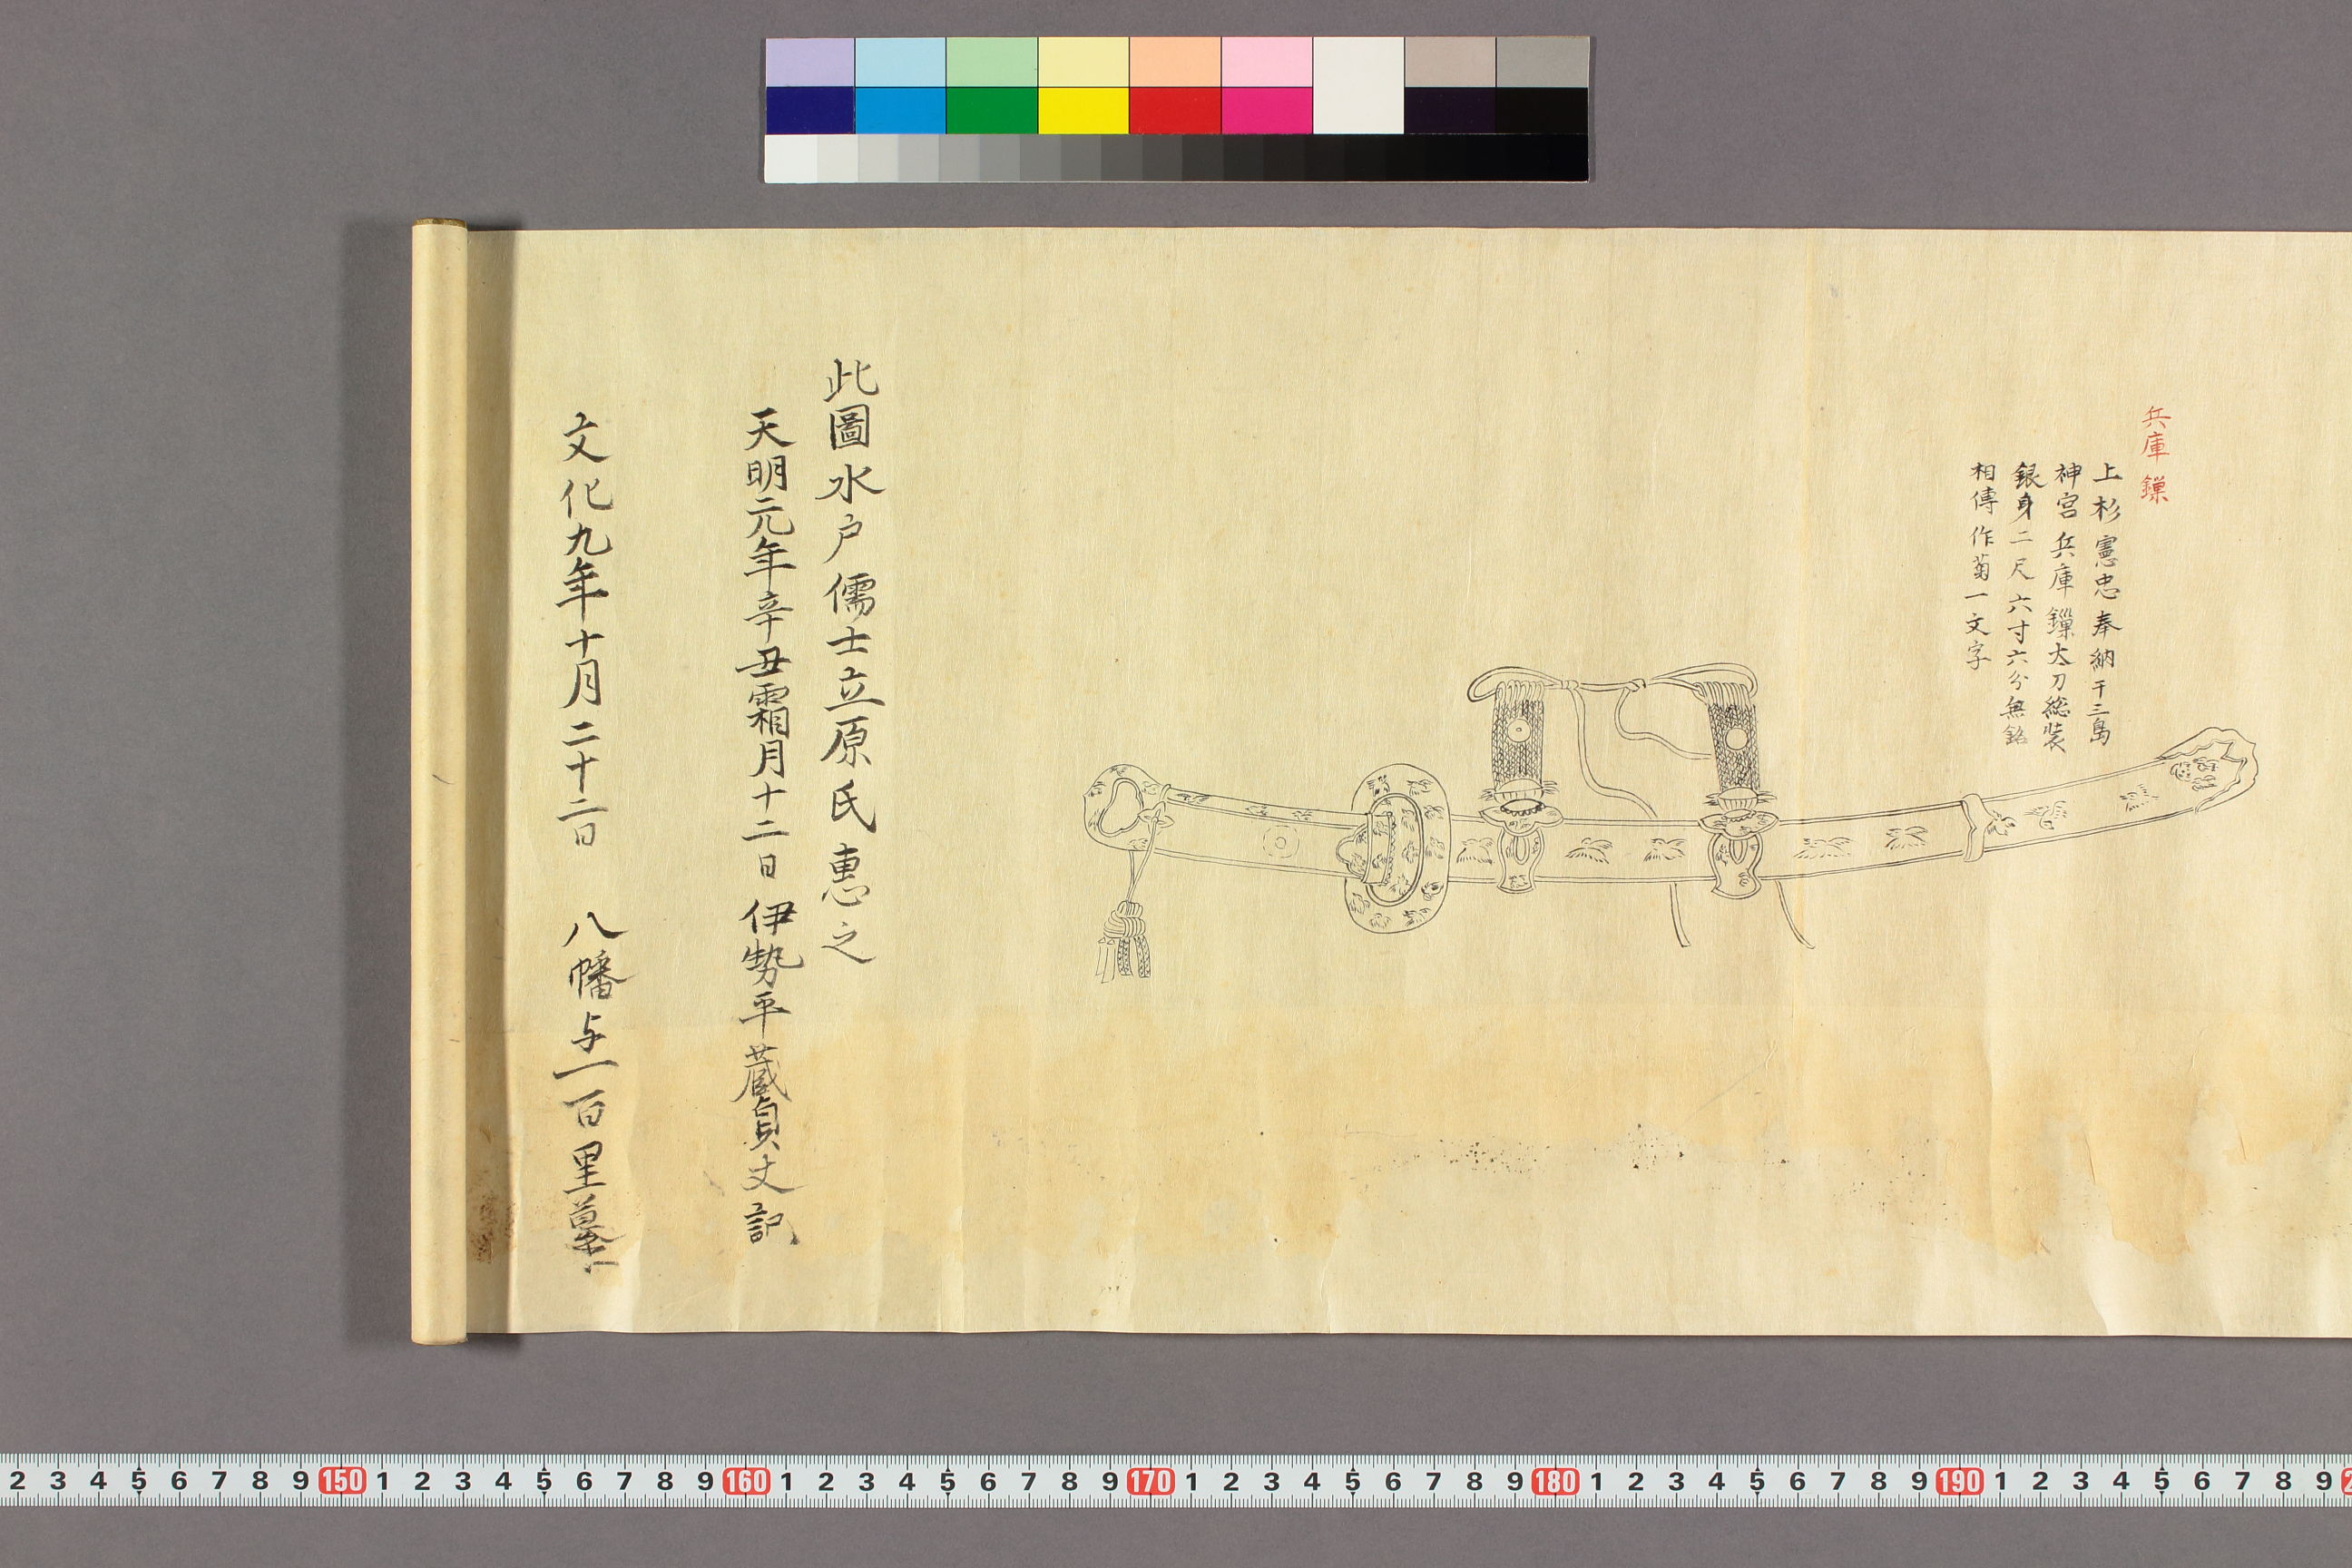 兵庫鏁
上杉憲忠奉納于三島
神宮兵庫鏁太刀総装
銀身二尺六寸六分無銘
相傳作菊一文字
此圖水戸儒士立原氏惠之
天明元年辛丑霜月十二日伊勢平蔵貞丈記
文化九年十月二十二日 八幡与一百里
2 3 4 5 6 7 8 9 150 1 2 3 4 5 6 7 8 9 160 1 2 3 4 5 6 7 8 9 170 1 2 3 4 5 6 7 8 9 180 1 2 3 4 5 6 7 8 9 190 1 2 3 4 5 6 7 8 9